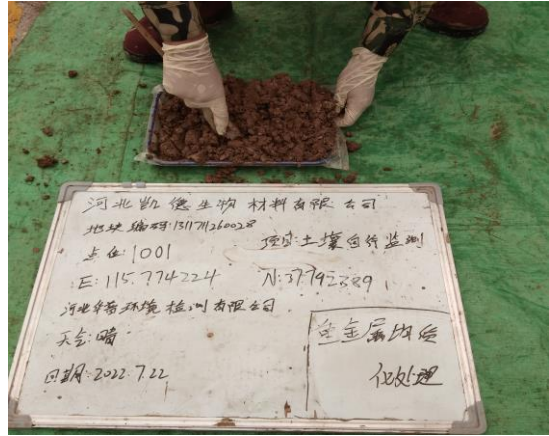 河北凯德生物材料有限公司
地块编码:1311711260028
点位:1001
项目:土壤自行监测
E:115.774224
N:37.792389
河北华清环境检测有限公司
天气:晴
日期:2022.7.22
重金属均质
化处理